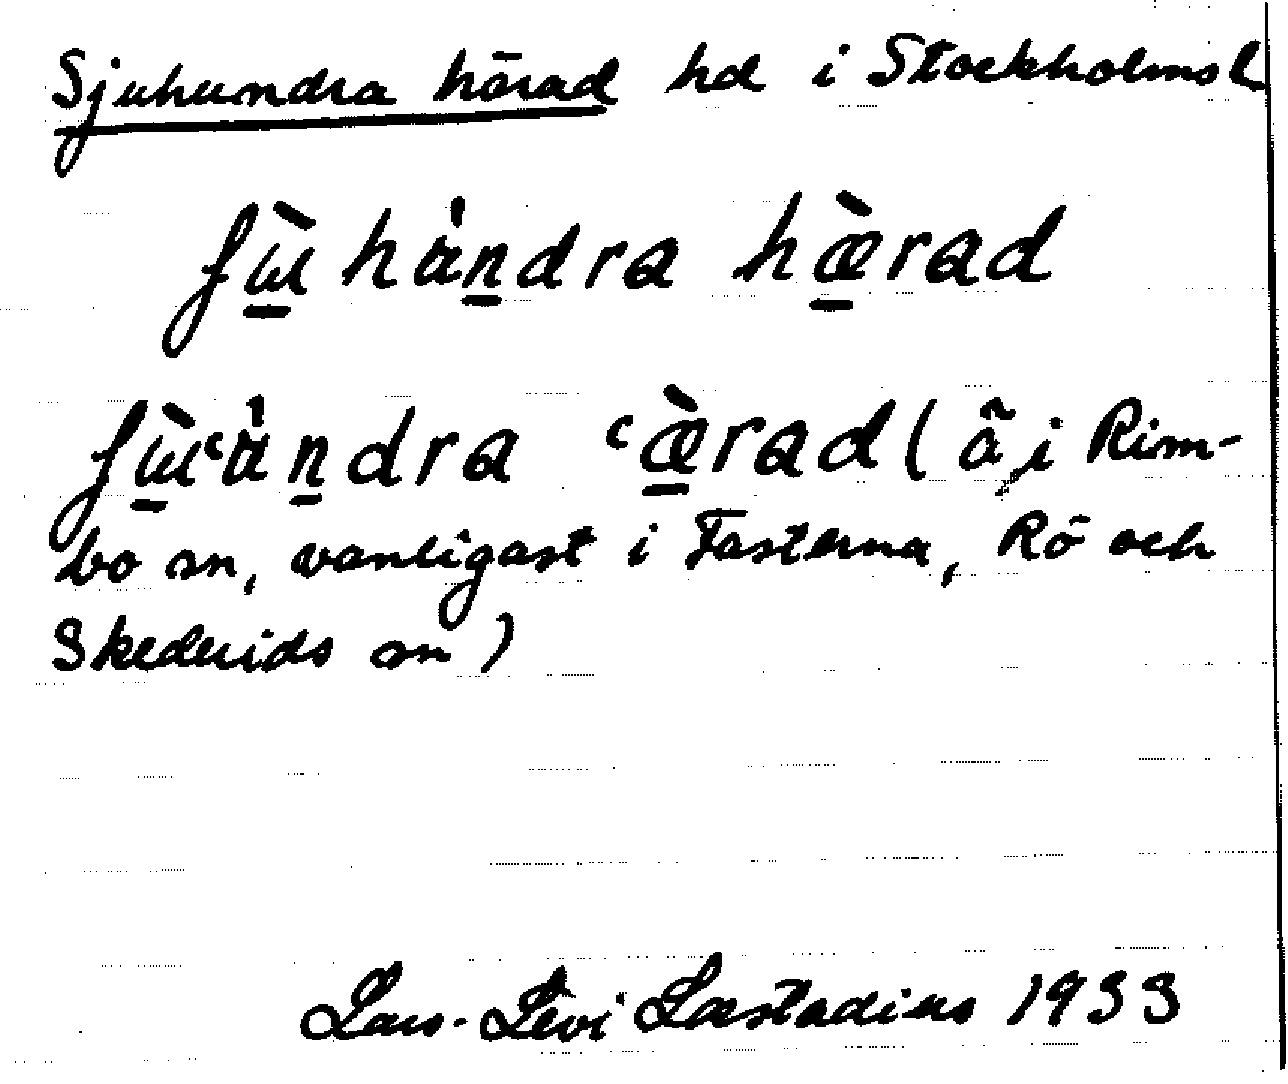 Sjuhundra härad hd i Stockholms l
ʃɯ̲̀ han̲dra hæ̲̀rad
ʃɯ̲̀ʿan̲dra ʿæ̲̀rad (ä i Rim-
bo sn, vanligast i Fasterna, Rö och
Skederids sn)
Lars-Levi Læstadius 1933